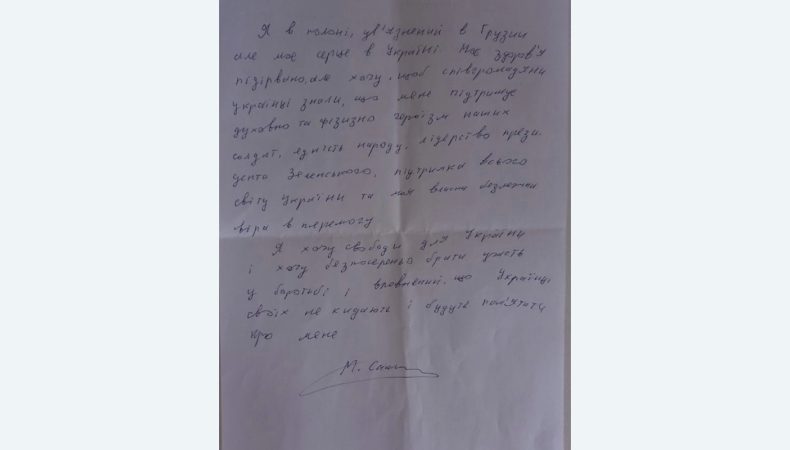 Я в полоні, ув'язнений в Грузии
але моє серце в Україні. Моє здоров'я
підірвано, але хочу, щоб співгромадяни
українці знали, що мене підтримує
духовно та фізизно героїзм наших
солдат, єдність народу, лідерство прези-
дента Зеленського, підтримка всього
світу України та моя власна безмежна
віра в перемогу
Я хочу свободи для України
і хочу безпосереньо брати участь
у боротьбі і впевнений, що Українці
своїх не кидають і будуть пам'ятати
про мене
М.